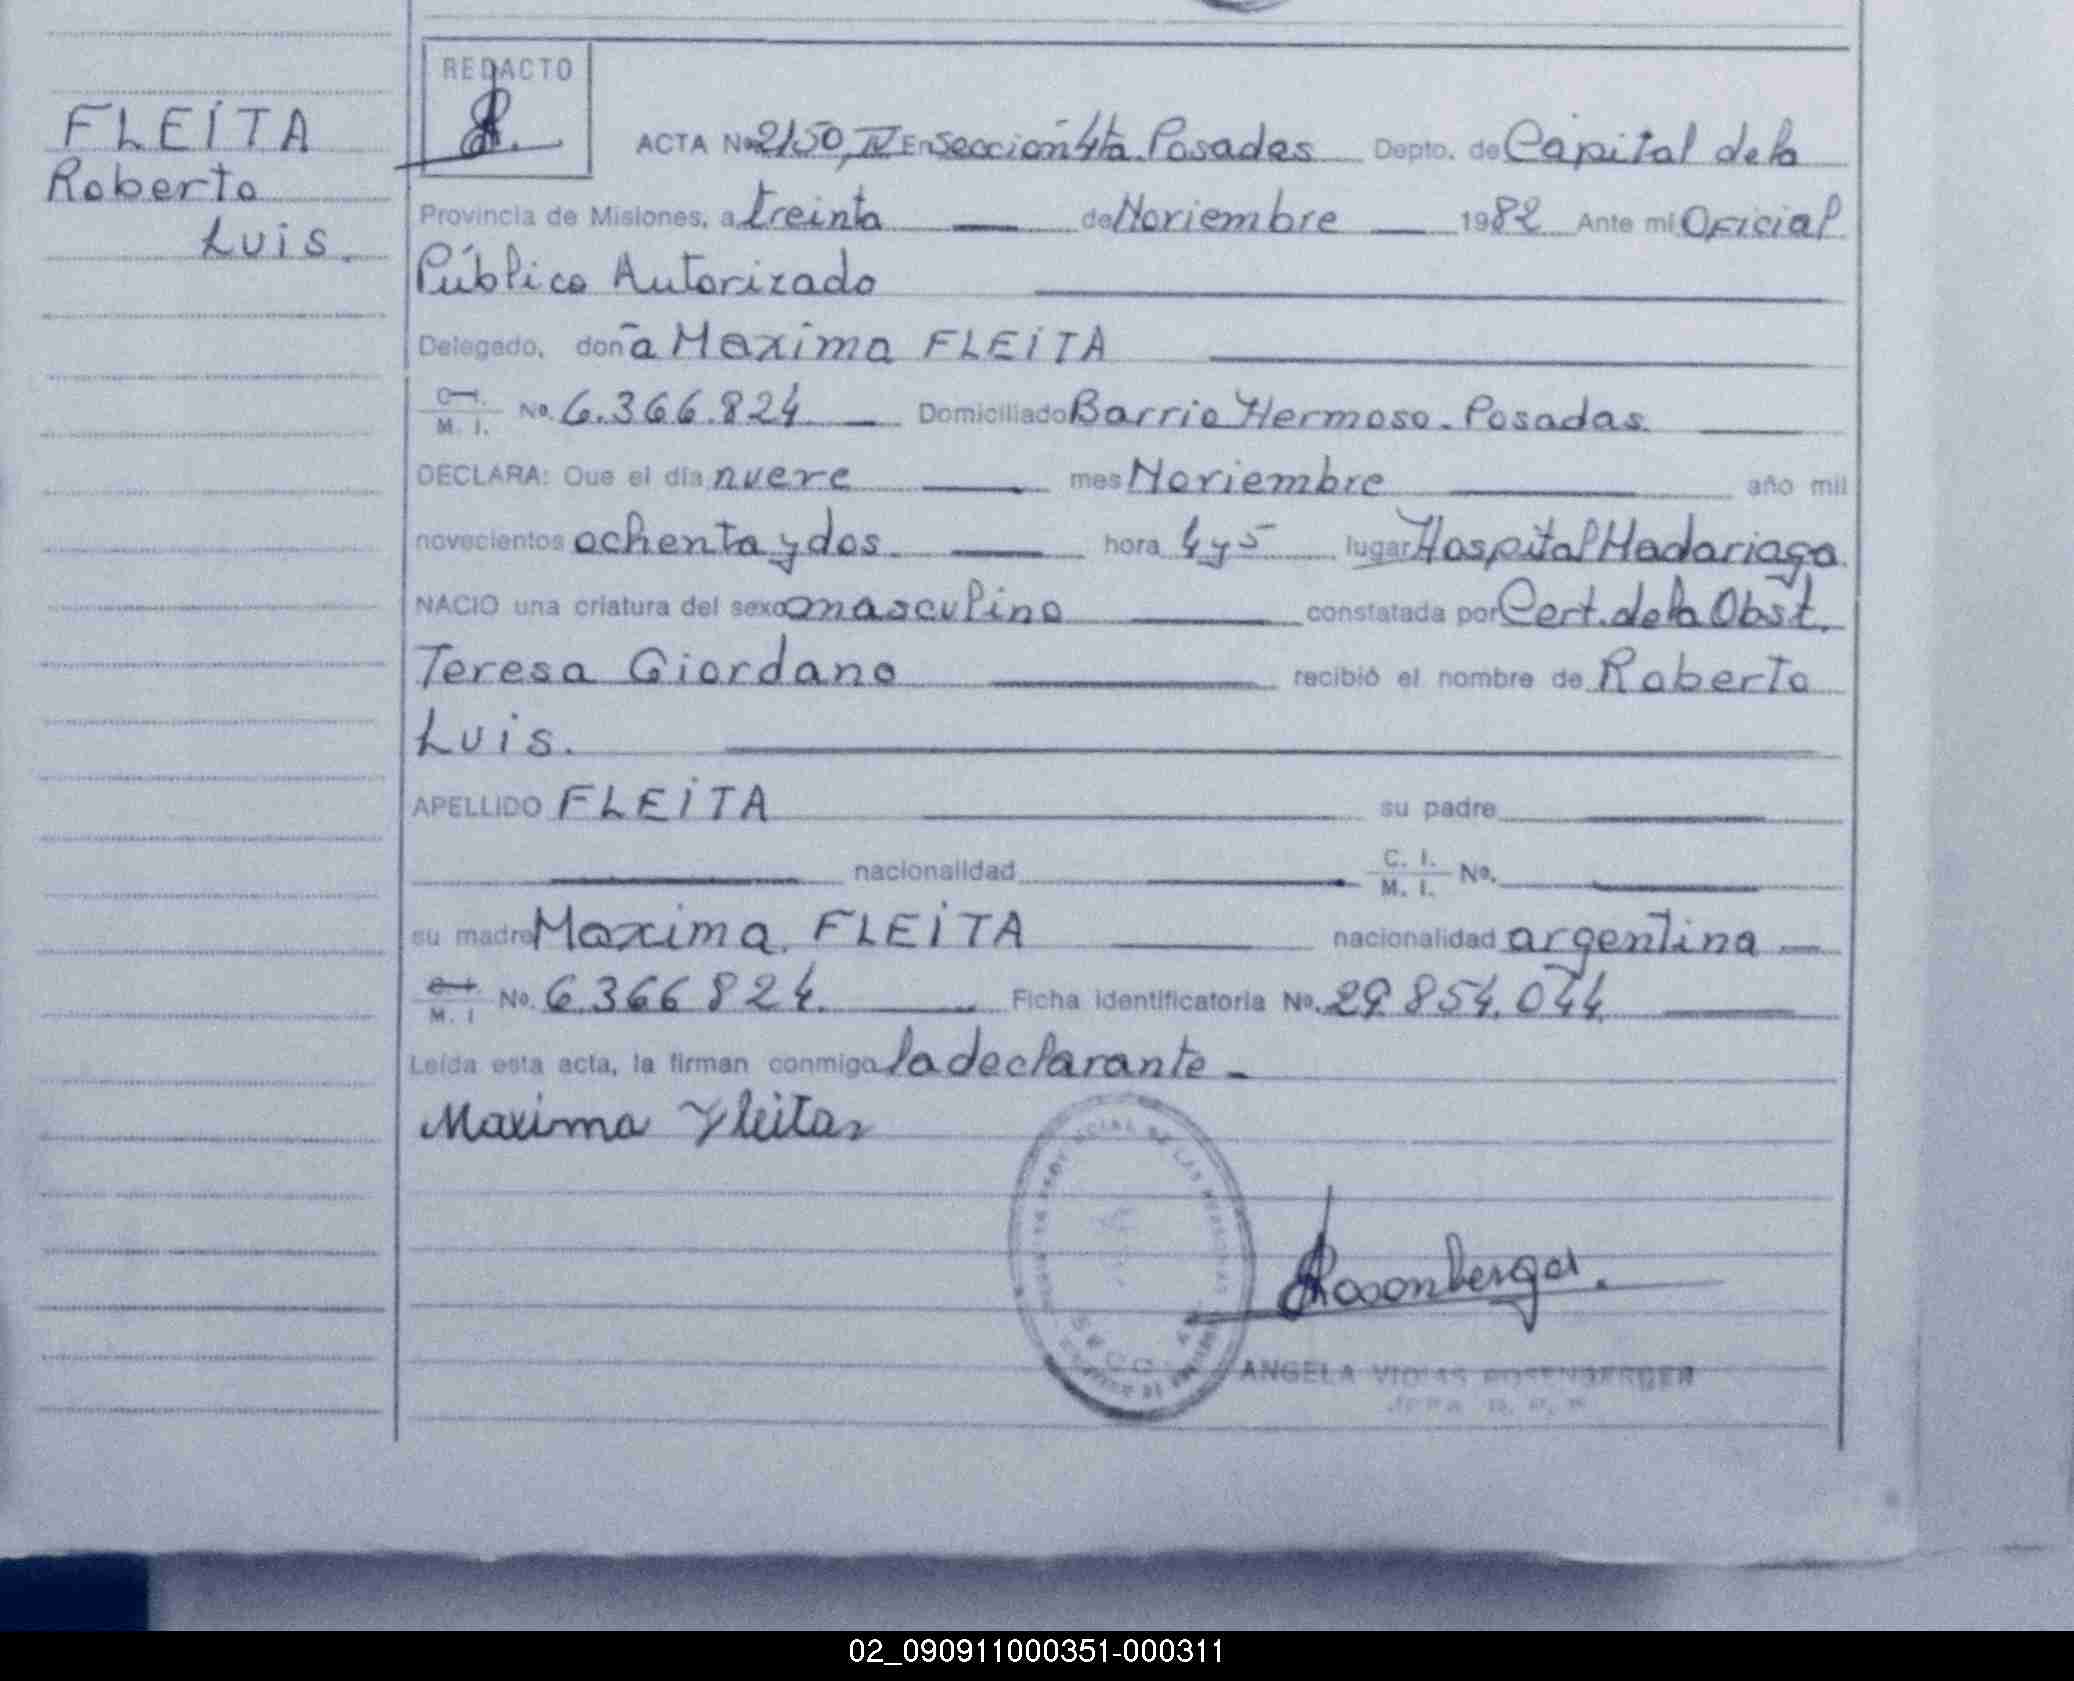 FLEITA
Roberto
Luis.
REDACTO
ACTA No 2150, IV En Sección 4ta. Posadas Depto. de Capital de la
Provincia de Misiones, a treinta de Noviembre 1982 Ante mí Oficial
Público Autorizado
Delegado, doña Maxima FLEITA
C. I. M. I. No. 6.366.824 Domiciliado Barrio Hermoso - Posadas.
DECLARA: Que el día nueve mes Noviembre año mil
novecientos ochenta y dos hora 4 y 5 lugar Hospital Madariaga
NACIO una criatura del sexo masculino constatada por Cert. de la Obst.
Teresa Giordano recibió el nombre de Roberto
Luis.
APELLIDO FLEITA su padre
nacionalidad C. I. M. I. No.
su madre Maxima FLEITA nacionalidad argentina
C. I. M. I No. 6.366.824. Ficha identificatoria No. 29.854.044
Leída esta acta, la firman conmigo la declarante -
Maxima Fleitas
Rosenberger.
ANGELA ROSENBERGER
02_090911000351-000311